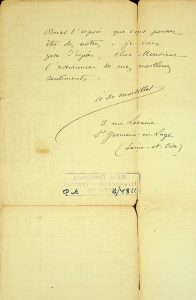 Dans l'espoir que vous pourrez
être des nôtres, je vous
prie d'agréer, cher Monsieur
l'assurance de mes meilleurs
sentiments.
A de Mortillet
3 rue
St Germain-en-Laye
(Seine-et-Oise)